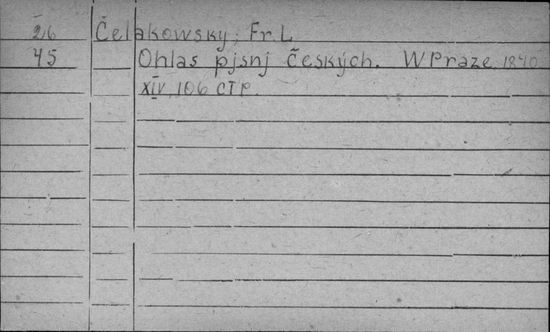 I 26 Čelakowsky, Fr. L
45 Ohlas pjsnj českých. W Praze 1840
XIV, 106 стр.